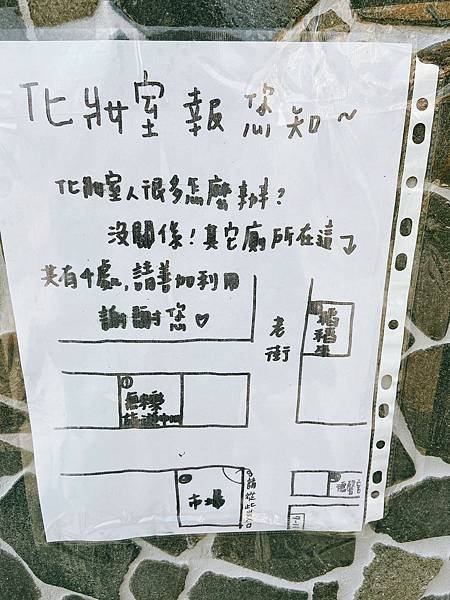 化妝室報您知~
化妝室人很多怎麼辦?
沒關係!其它廁所在這↴
共有4處,請善加利用
謝謝您♡
老街
①
市場
請從此入口